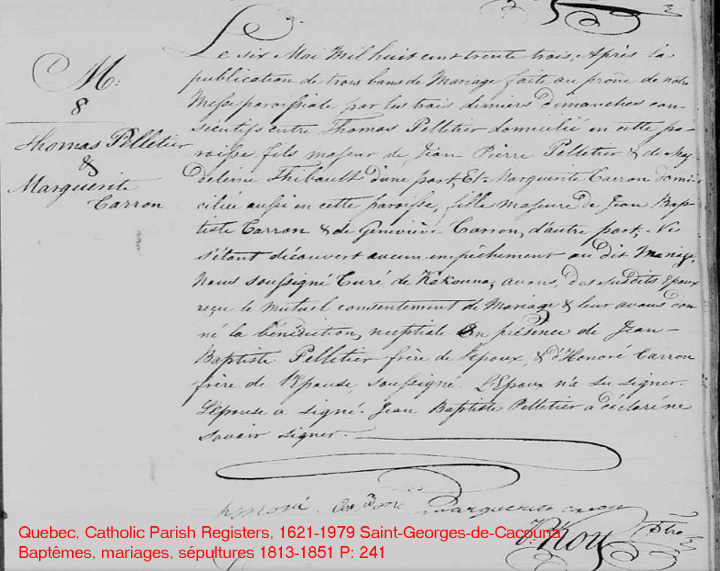 M:
8
Thomas Pelletier
&
Marguerite
Carron
Le six Mai Mil huit cent trente trois, Après la
publication de trois bans de Mariage faite au prône de notre
Messe paroissiale par les trois derniers dimanches con-
sécutifs entre Thomas Pelletier domicilié en cette pa-
roisse fils majeur de Jean Pierre Pelletier & de Ma-
deleine Thibault d'une part, Et Marguerite Carron domi-
ciliée aussi en cette paroisse, fille majeure de Jean Bap-
tiste Carron & de Geneviève Carron, d'autre part, Ne
s'étant découvert aucun empêchement au dit Mariage
Nous soussigné Curé de Kakouna, avons, des susdits Epoux
reçu le mutuel consentement de Mariage & leur avons don-
né la bénédiction nuptiale En présence de Jean-
Baptiste Pelletier frère de l'époux, & d'Honoré Carron
frère de l'Epouse, soussigné. L'Epoux n'a su signer.
L'épouse a signé. Jean Baptiste Pelletier a déclaré ne
savoir signer.
honoré marguerite caron
Ptre
Quebec, Catholic Parish Registers, 1621-1979 Saint-Georges-de-Cacouna
Baptêmes, mariages, sépultures 1813-1851 P: 241